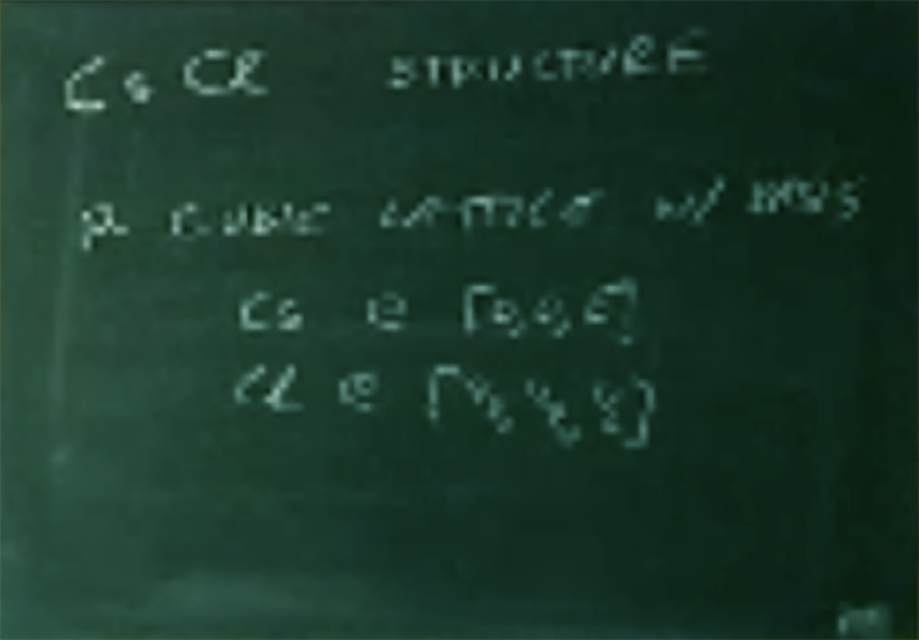 CsCl STRUCTURE
CUBIC LATTICE w/ BASIS
Cs @ [0,0,0]
Cl @ [½,½,½]